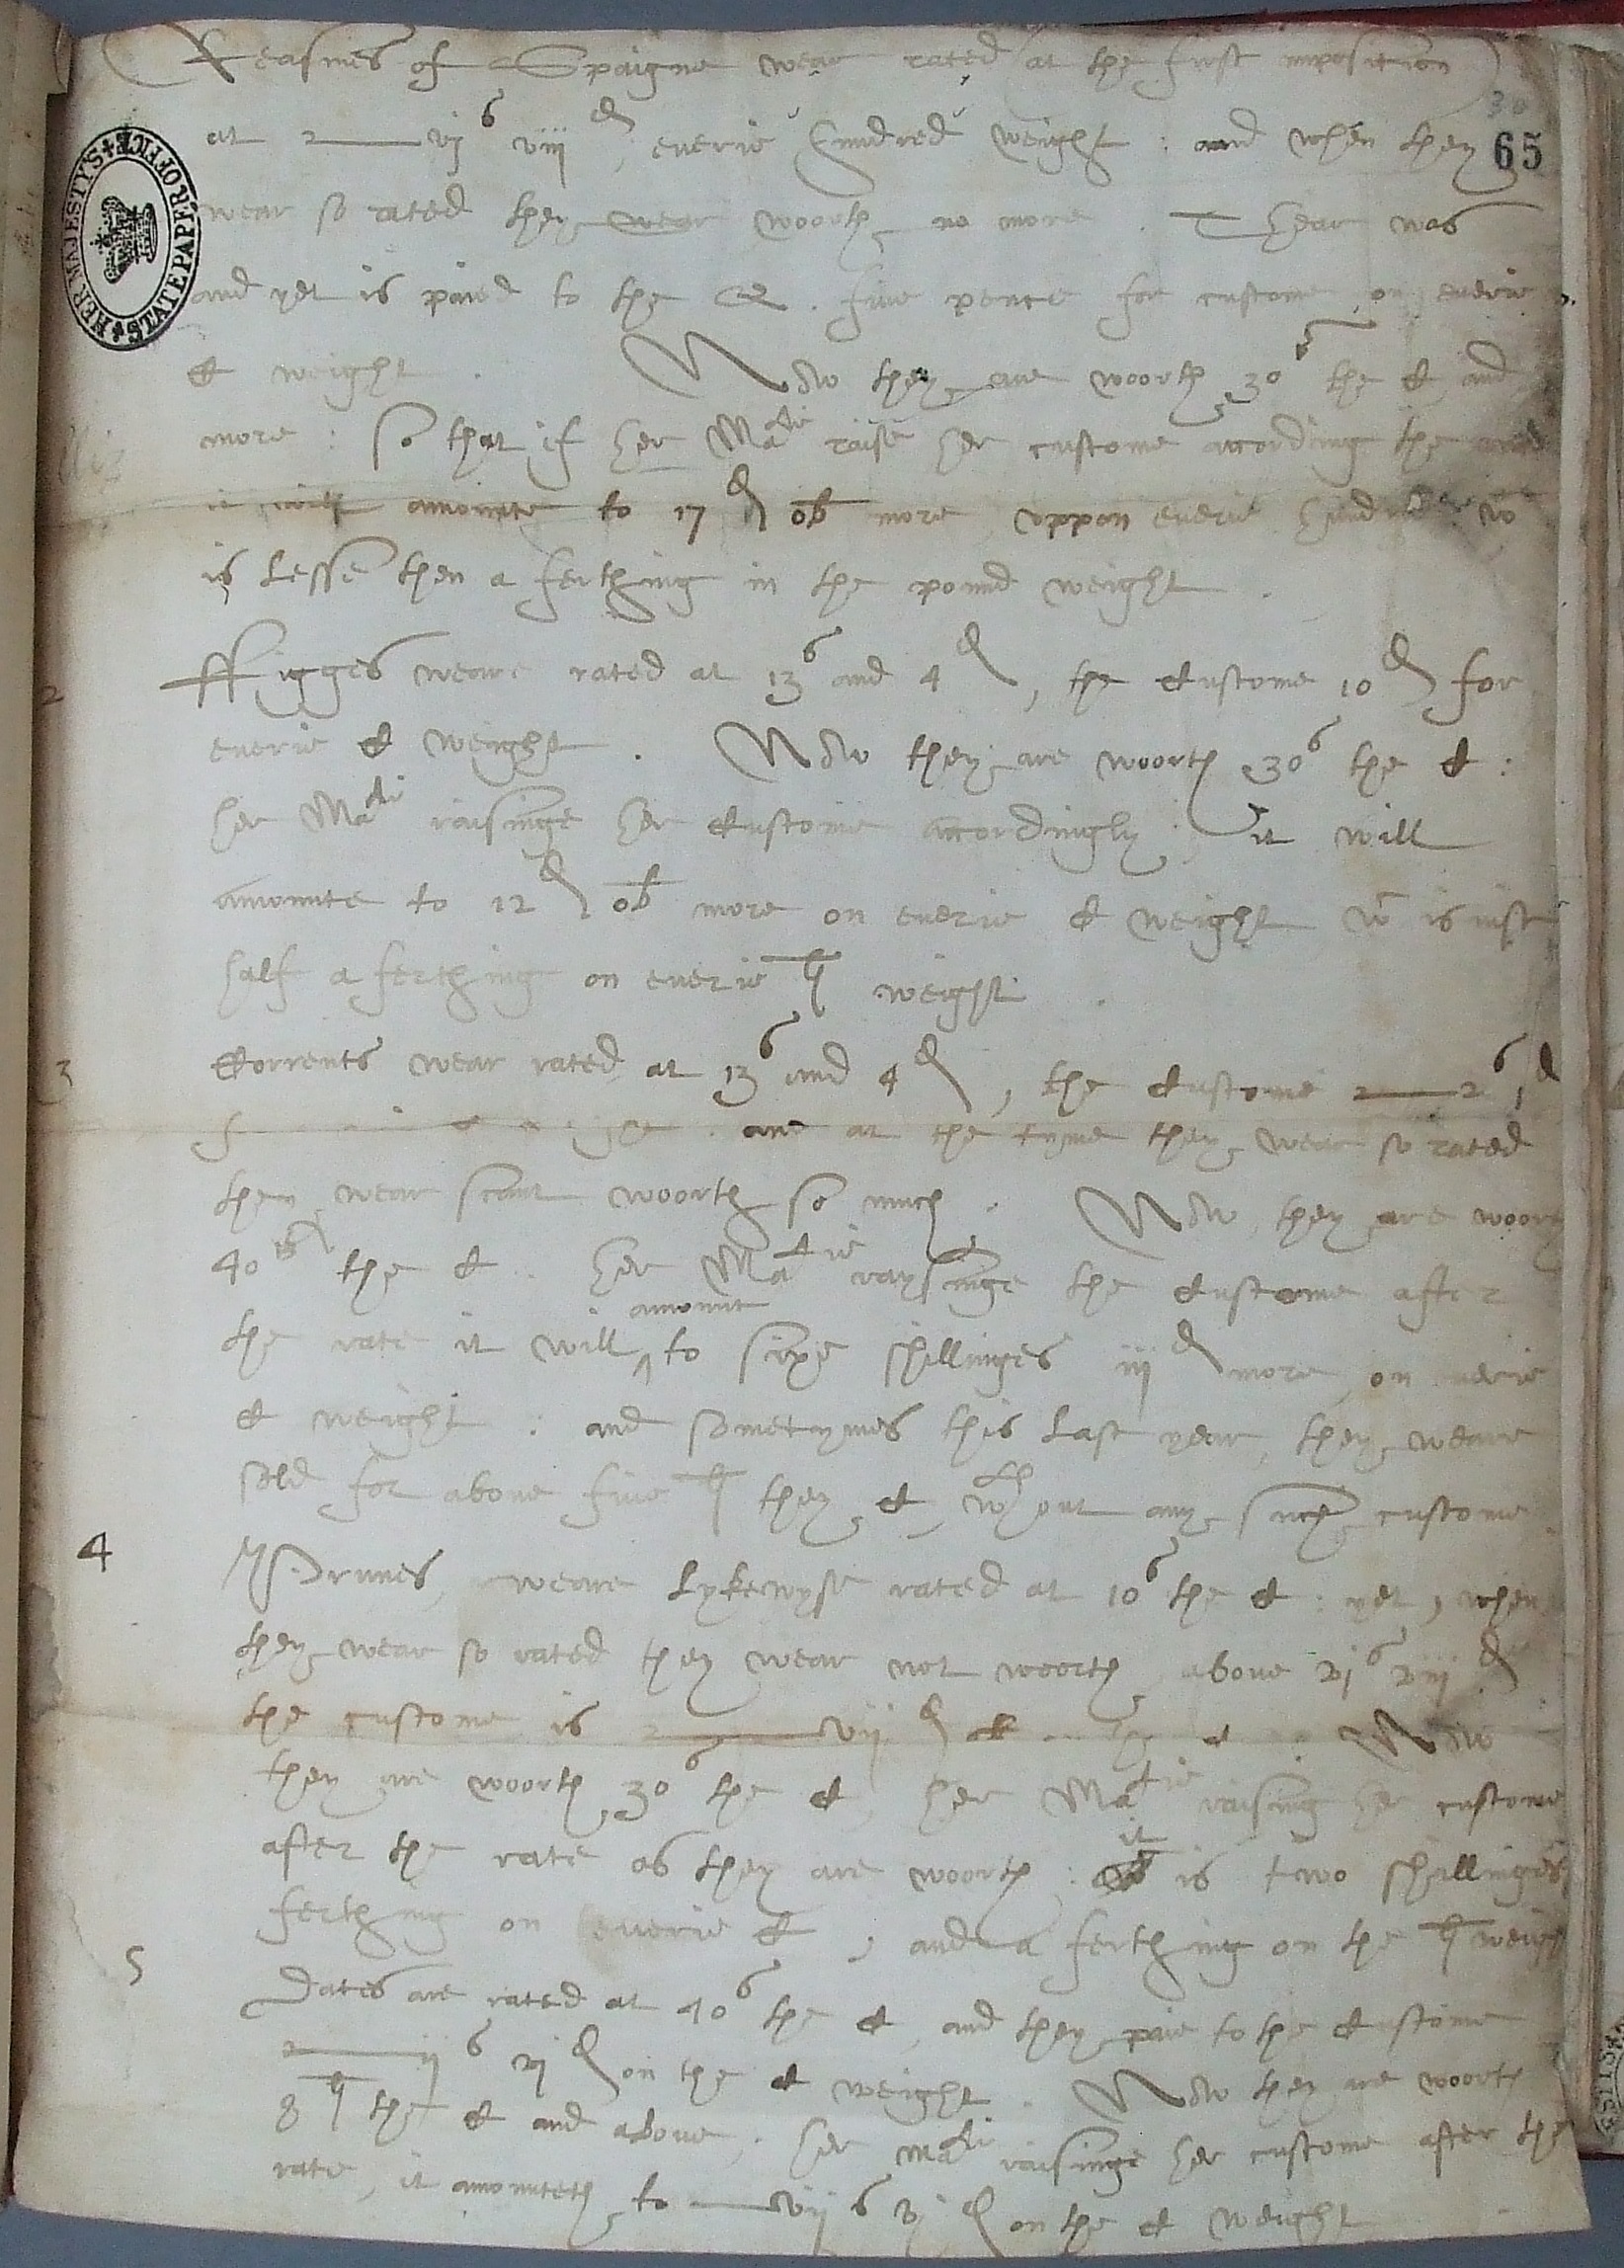 Reasines of Spaigne wear rated at the first imposition
30
at vjs viijd everie hundred weight : and when they
65
wear so rated they wear woorth no more . Thear was
and yet is paied to the Q . five pence for custome on everie
C weight . Now they are woorth 30s the C and
more : so that if her Matie raise her custome according the
it will amounte to 17d ob more uppon everie hundred wc
is lesse then a ferthing in the pound weight .
2 Ffigges weare rated at 13s and 4d , the Custome 10d for
everie C weight . Now they are woorth 30s the C :
her Matie raisinge her Custome accordingly , it will
amounte to 12d ob more on everie C weight wc is iust
half a ferthing on everie li weight .
3 Corrents wear rated at 13s and 4d , the Custome 2s 1d
and at the tyme they wear so rated
they wear scant woorth so much . Now they are woorth
40s the C . her Matie raysinge the Custome after
amount
the rate it will ^ to sixe shillinges iijd more on everie
C weight : and sometymes this last year , they weare
sold for above five li they C , wthout any such custome
4 Prunes weare lykewyse rated at 10s the C : yet , when
they wear so rated they wear not woorth above vjs viijd
the custome is vijd Now
they are woorth 30s the C , her Matie raising her custome
it
after the rate as they are woorth : is two shillinges
ferthing on everie C , and a ferthing on the li weigh
5 Dates are rated at 40s the C , and they paie to the Custome
ijs vjd on the C weight . Now they are woorth
8li the C and above . her Matie raisinge her custome after the
rate , it amounteth to vijs vjd on the C weight
HER MAJESTY'S STATE PAPER OFFICE